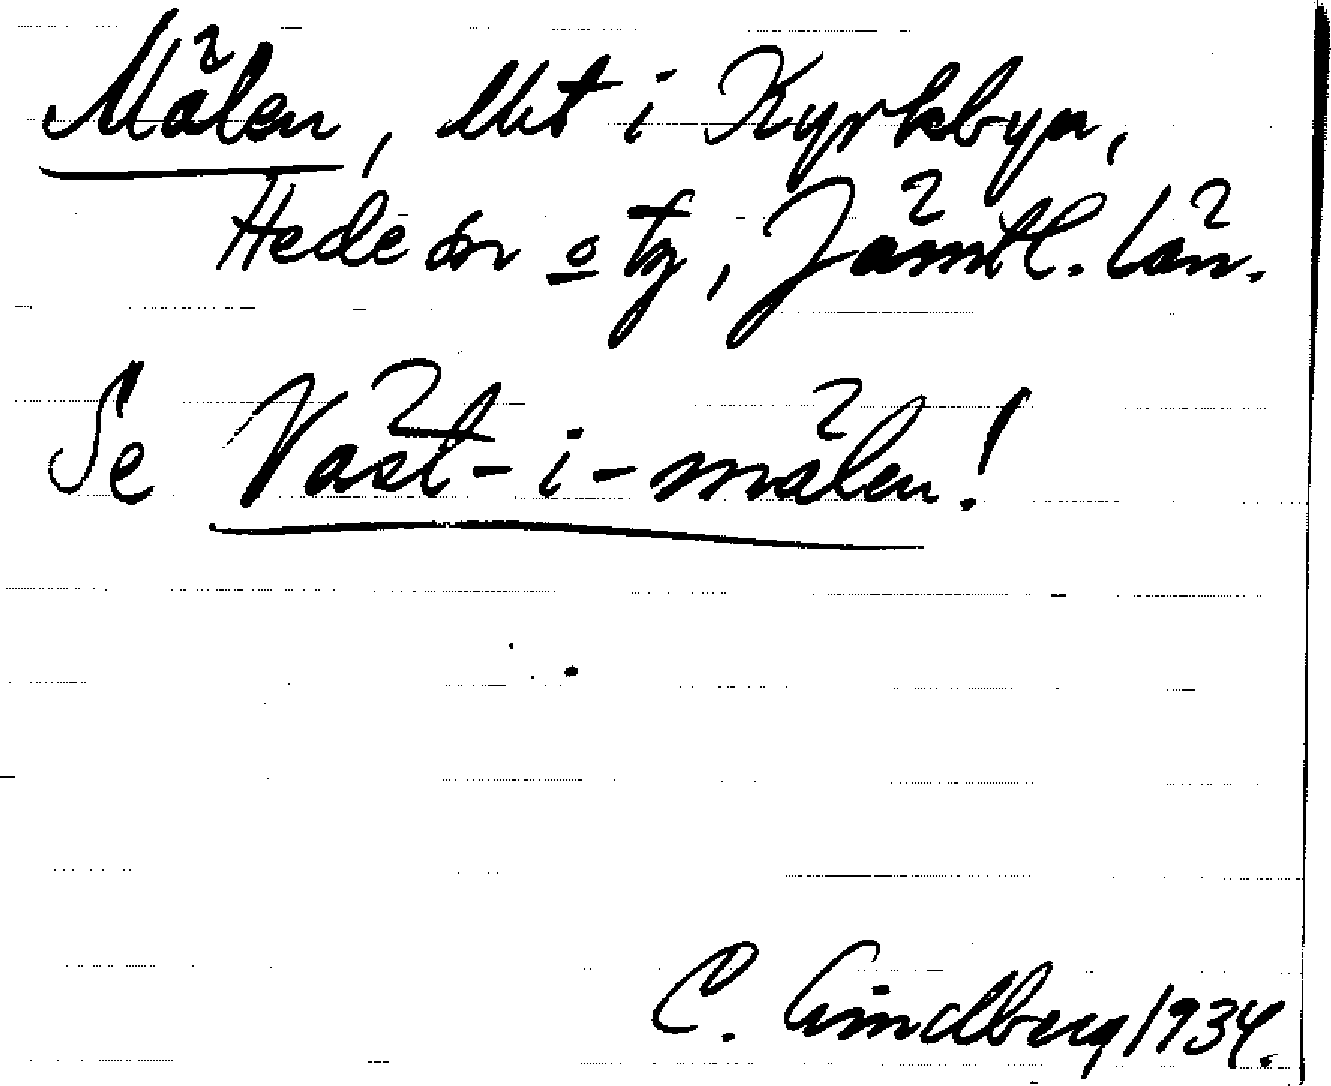 Mälen, i Kyrkbyn,
Hede sn o tg, Jämtl. län.
Se Väst-i-mälen!
C. Lindberg 1934.